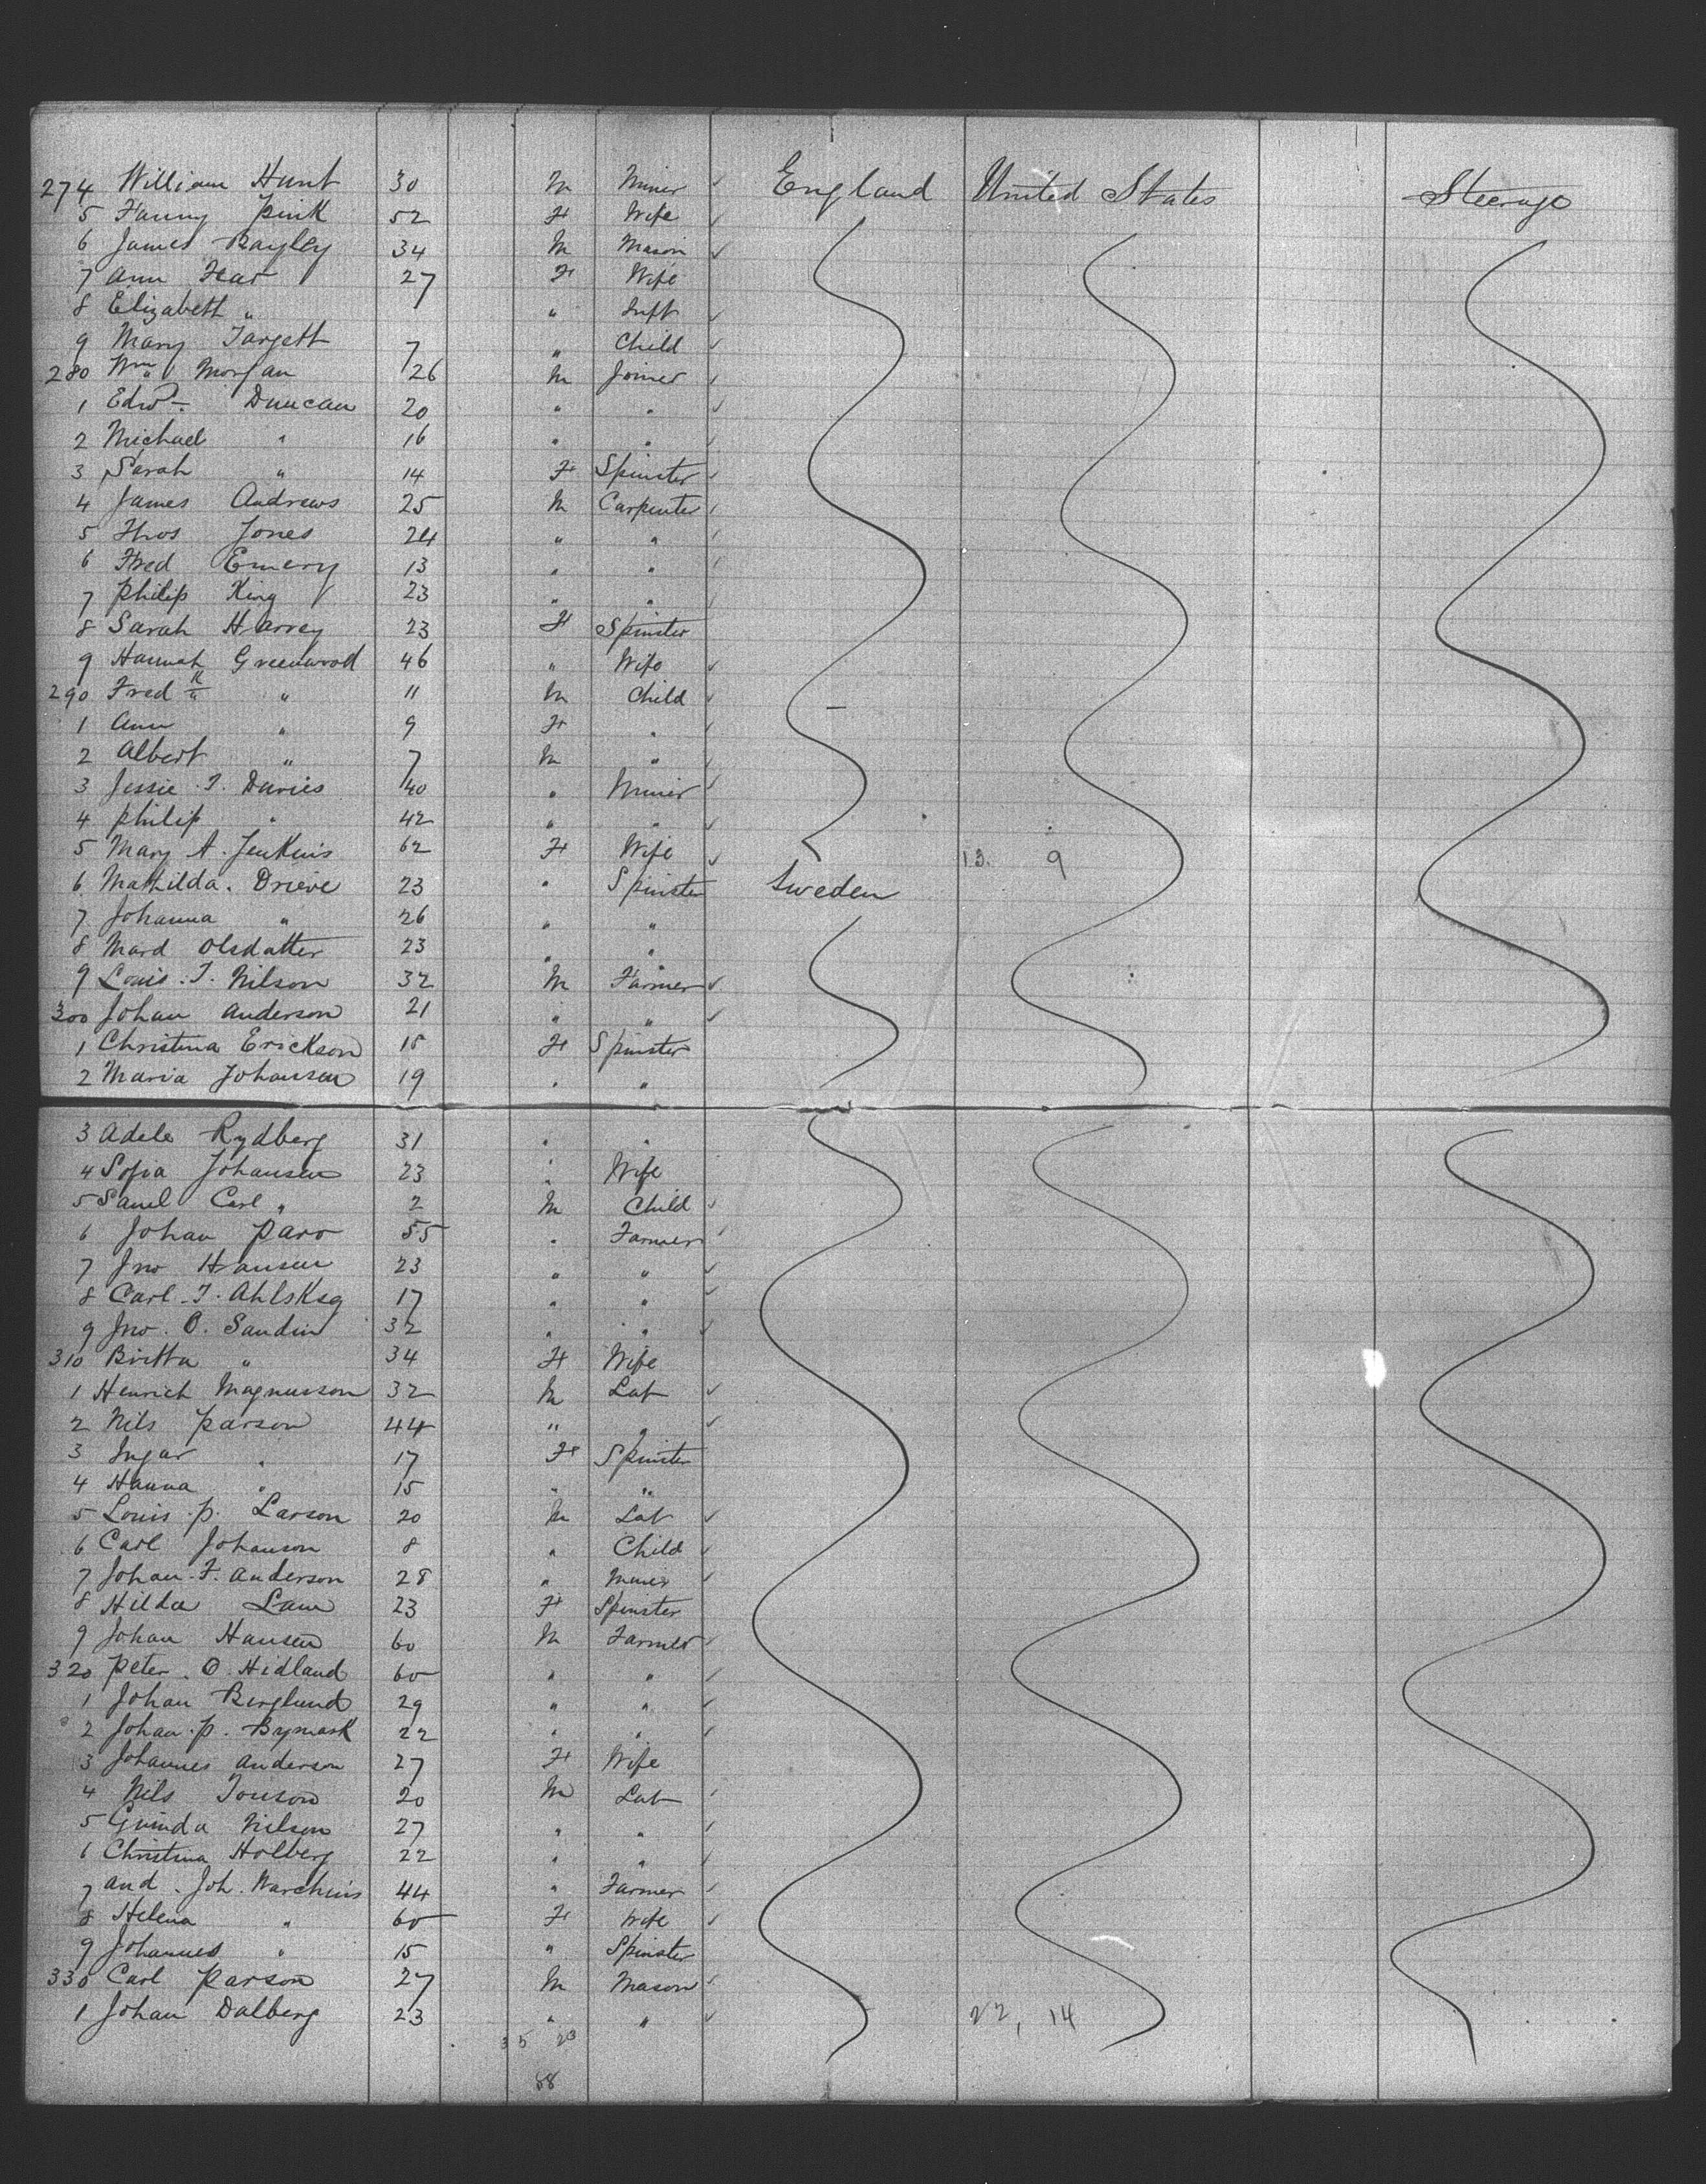 274 William Hunt 30 M Miner ✓ England United States Steerage
5 Fanny Pink 52 F Wife ✓
6 James Bayley 34 M Mason ✓
7 Ann Fear 27 F Wife
8 Elizabeth " " Inft ✓
9 Mary Targett 7 " Child ✓
280 Wm Morgan 26 M Joiner ✓
1 Edwd Duncan 20 " " ✓
2 Michael " 16 " " ✓
3 Sarah " 14 F Spinster ✓
4 James Andrews 25 M Carpenter ✓
5 Thos Jones 24 " " ✓
6 Fred Emery 13 " " ✓
7 Philip King 23 " " ✓
8 Sarah Harvey 23 F Spinster
9 Hannah Greenwood 46 " Wife ✓
290 Fredk " 11 M Child ✓
1 Ann " 9 F " ✓
2 Albert " 7 M " ✓
3 Jessie T. Davies 40 " Miner ✓
4 Philip " 42 " " ✓
5 Mary A. Jenkins 62 F Wife ✓ 13. 9
6 Mathilda. 23 " Spinster Sweden
7 Johanna " 26 " "
8 Mard Olsdatter 23 " "
9 Louis. T. Nilson 32 M Farmer ✓
300 Johan Anderson 21 " " ✓
1 Christina Erickson 18 F Spinster
2 Maria Johansen 19 " "
3 Adele Rydberg 31 " "
4 Sofia Johansen 23 " Wife
5 Saml Carl " 2 M Child ✓
6 Johan Paro 55 " Farmer ✓
7 Jno Hansen 23 " " ✓
8 Carl. T. 17 " " ✓
9 Jno. O. Sandin 32 " " ✓
310 Britta " 34 F Wife
1 Henrich Magnusson 32 M Lab ✓
2 Nils Parson 44 " " ✓
3 Ingar " 17 F Spinster
4 Hanna " 15 " "
5 Louis. P. Larson 20 M Lab ✓
6 Carl Johanson 8 " Child ✓
7 Johan. F. Anderson 28 " Miner ✓
8 Hilda 23 F Spinster
9 Johan Hansen 60 M Farmer ✓
320 Peter. O. Hidland 60 " " ✓
1 Johan Berglund 29 " " ✓
2 Johan. P. Bymark 22 " " ✓
3 Johannes Anderson 27 F Wife
4 Nils Tonson 20 M Lab ✓
5 Nilson 27 " " ✓
6 Christina Holberg 22 " " ✓
7 And. Joh. 44 " Farmer ✓
8 Helena " 60 F Wife ✓
9 Johannes " 15 " Spinster
330 Carl Parson 27 M Mason ✓
1 Johan Dalberg 23 " " ✓ 22, 14
35 23
58